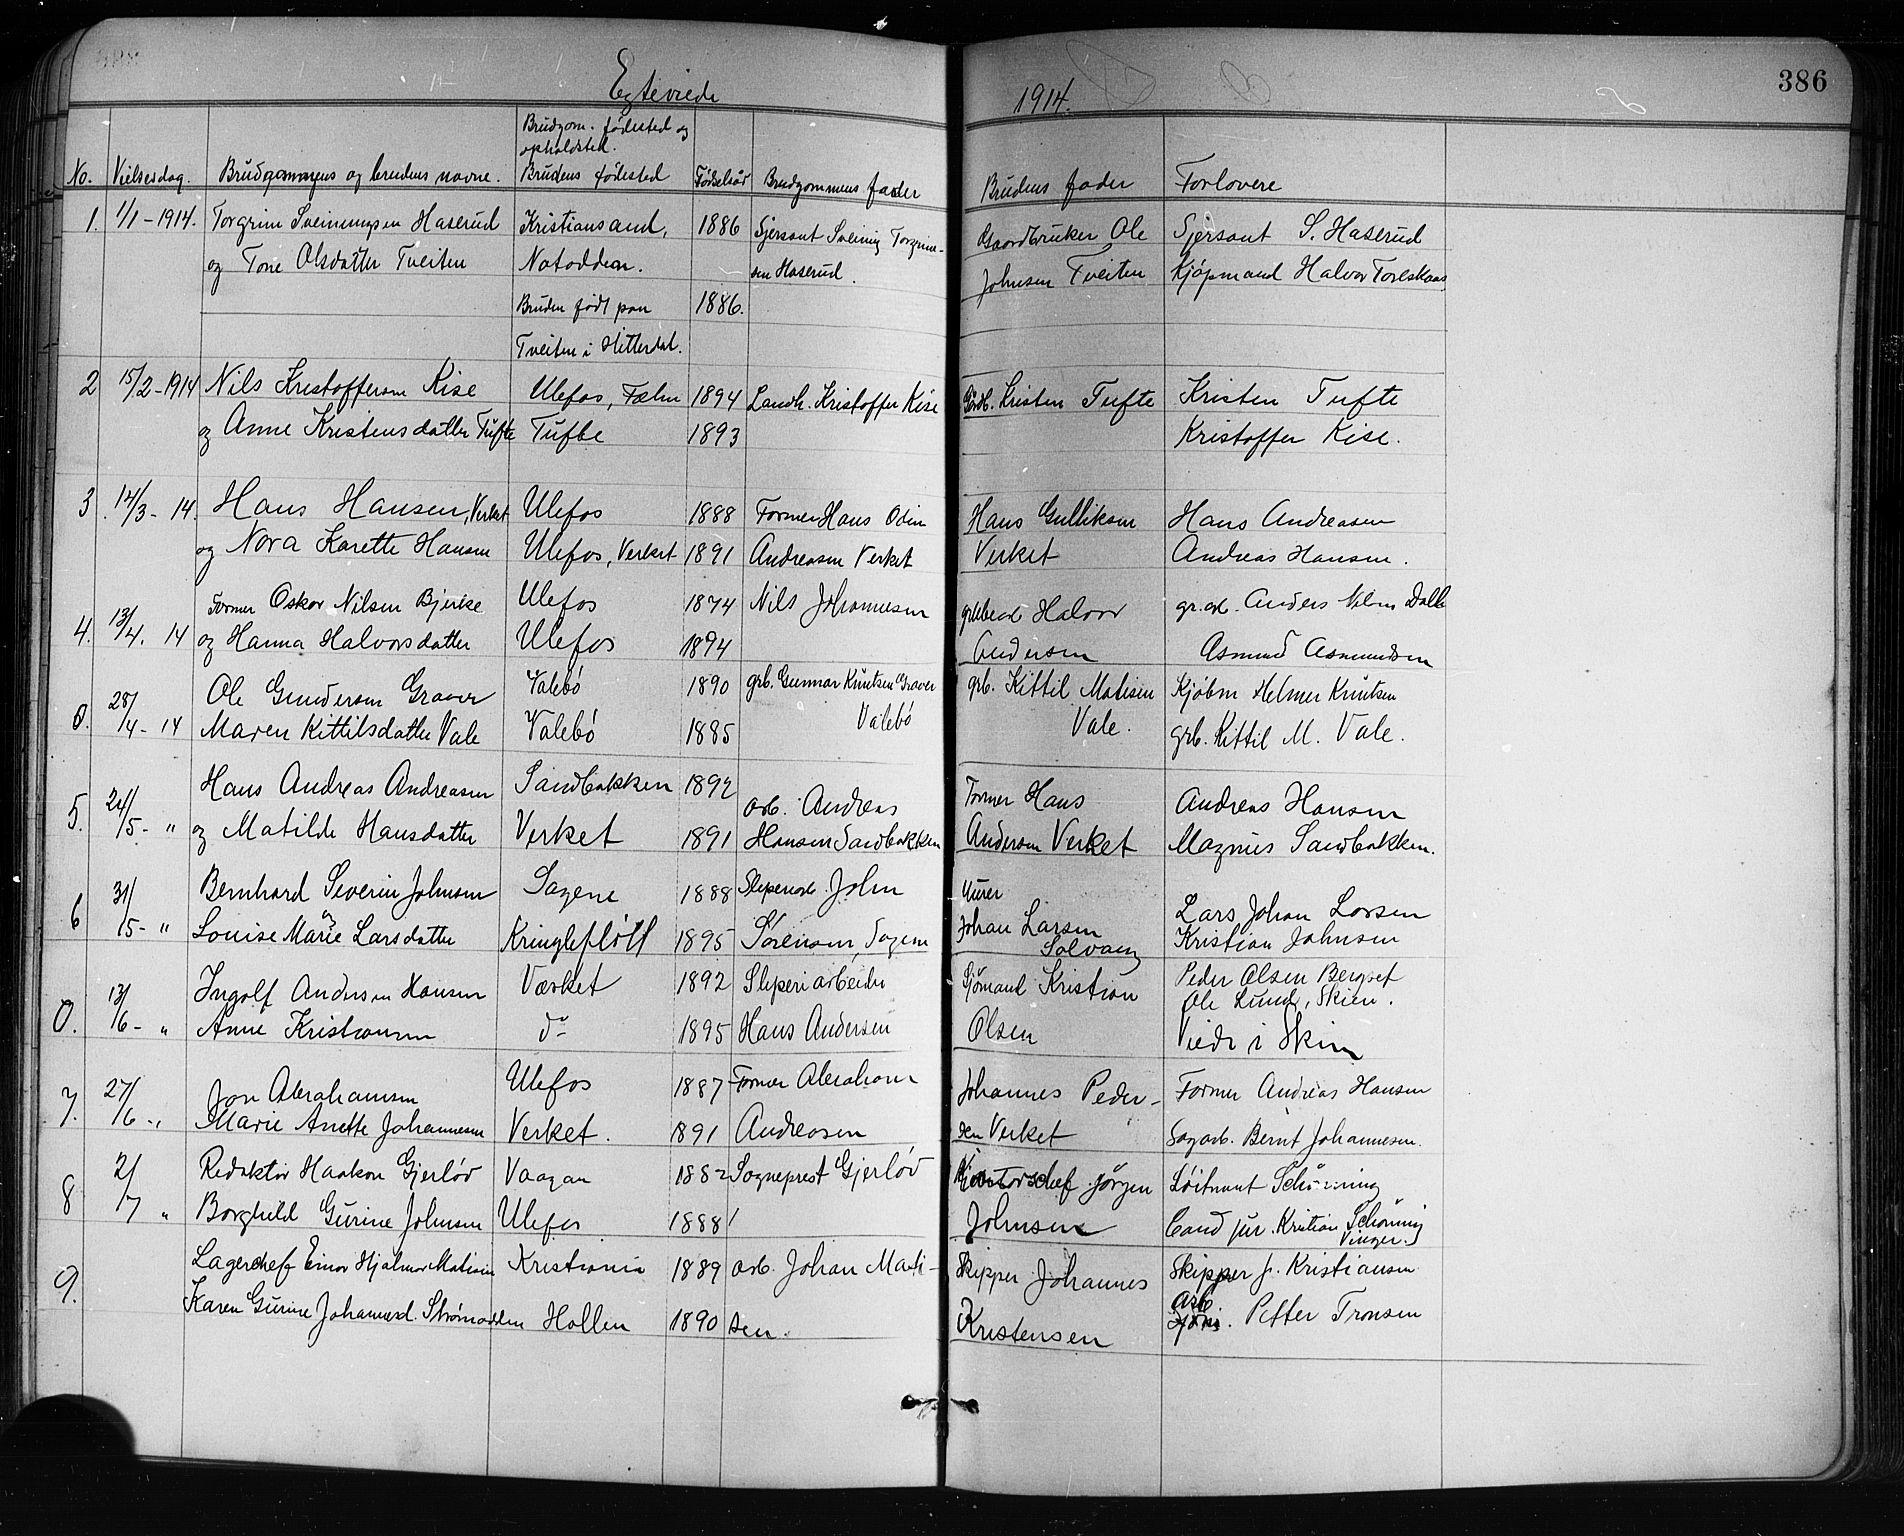 Egteviede
1914.
386
No. Vielsesdag. Brudgommens og brudens navne. Brudgom. fødested og opholdsted. Brudens fødested Fødselsår Brudgommens fader Brudens fader Forlovere
1. 1/1-1914. Torgrim Sveinungsen Haserud Kristiansand, 1886 Sjersant Sveinung Torgrim- Gaardbruker Ole Sjersant S. Haserud
og Tone Olsdatter Tveiten Notodden. sen Haserud. Johnsen Tveiten Kjøpmand Halvor Toreskaas
Bruden født paa 1886.
Tveiten i Hitterdal.
2 15/2-1914 Nils Kristoffersen Kise Ulefos, Fæhn 1894 Landh. Kristoffer Kise Gårdb. Kristen Tufte Kristen Tufte
og Anne Kristensdatter Tufte Tufte 1893 Kristoffer Kise.
3 14/3-14. Hans Hansen, Verket Ulefos 1888 Former Hans Odin Hans Gulliksen Hans Andreasen
og Nora Karette Hansen Ulefos, Verket 1891 Andreasen Verket Verket Andreas Hansen.
4. 13/4. 14 Former Oskar Nilsen Bjerke Ulefos 1874 Nils Johannesen Halvor gr.arb. Anders Nilsen Dalen
og Hanna Halvorsdatter Ulefos 1894 Andersen Asmund Asmundsen
0. 28/4-14 Ole Gundersen Graver Valebø 1890 grb. Gunnar Knutsen Graver grb. Kittil Matisen Kjøbm Helmer Knutsen
Maren Kittilsdatter Vale Valebø 1885 Valebø Vale. grb. Kittil M. Vale.
5. 24/5- " Hans Andreas Andreasen Sandbakken 1892 arb. Andreas Former Hans Andreas Hansen
og Matilde Hansdatter Verket 1891 Hansen Sandbakken Andersen Verket Magnus Sandbakken.
6 31/5- " Bernhard Severin Johnsen Sagene 1888 Sliperiarb. John Murer Lars Johan Larsen
Louise Marie Larsdatter Kringlefløtt 1895 Sørensen, Sagene Johan Larsen Solvang Kristian Johnsen
0. 13/6- " Ingolf Andersen Hansen Værket 1892 Sliperiarbeider Sjømand Kristian Peder Olsen Bergset
Ole Lund, Skien.
Anne Kristiansen do 1895 Hans Andersen Olsen Viede i Skien
7. 27/6 " Jon Abrahamsen Ulefos 1887 Former Abraham Johannes Peder- Former Andreas Hansen
Marie Anette Johannesen Verket. 1891 Andreasen sen Verket Sagarb. Bernt Johannesen.
8 2/7 " Redaktør Haakon Gjerløv Vaagan 1882 Sogneprest Gjerløv Kontorschef Jørgen Løitnant Schønning
Borghild Gurine Johnsen Ulefos 1888 Johnsen Cand jur. Kristian Schønning Vinger.
9. Lagerchef Einar Hjalmar Matisen Kristiania 1889 arb. Johan Mati- Skipper Johannes Skipper J. Kristiansen
Karen Gurine Johannesd. Strømodden Hollen 1890 sen. Kristensen Arb. Petter Tronsen